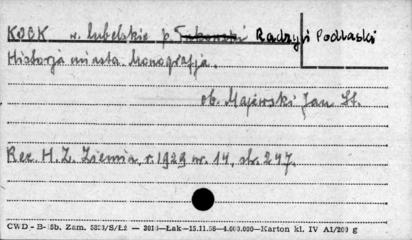 KOCK w. lubelskie p. Łukowski Radzyń Podlaski
Historja miasta. Monografja.
ob. Majewski Jan St.
Rec. H. Z. Ziemia, r. 1929 nr. 14, str. 247.
CWD - B- 5b. Zam. 5829/S/Ł2 — 3010—Łak—15.11.56—4.000.000—Karton kl. IV A1/200 g